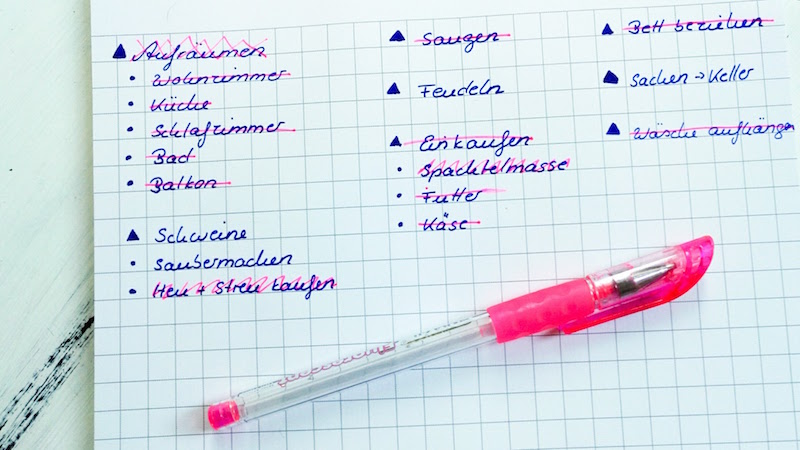 ▲ Aufräumen
• Wohnzimmer
• Küche
• Schlafzimmer
• Bad
• Balkon
▲ Schweine
• saubermachen
• Heu + Streu kaufen
▲ Saugen
▲ Feudeln
▲ Einkaufen
• Spachtelmasse
• Futter
• Käse
▲ Bett beziehen
▲ Sachen → Keller
▲ Wäsche aufhängen